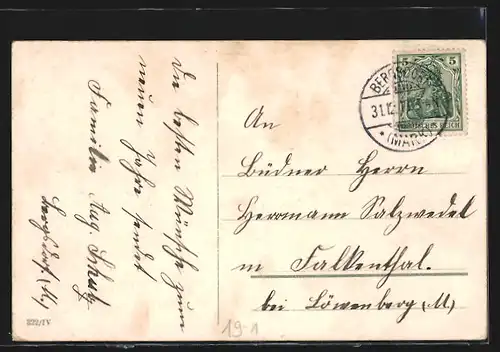 Die besten Wünsche zum
neuen Jahre sendet
Familie Aug. Schulz
Bergsdorf (M)
222/IV
An
Büdner Herrn
Herrmann Salzwedel
in Falkenthal.
bei Löwenberg (M)
19-1
5 5
DEUTSCHES REICH
31.12.
(MARK)